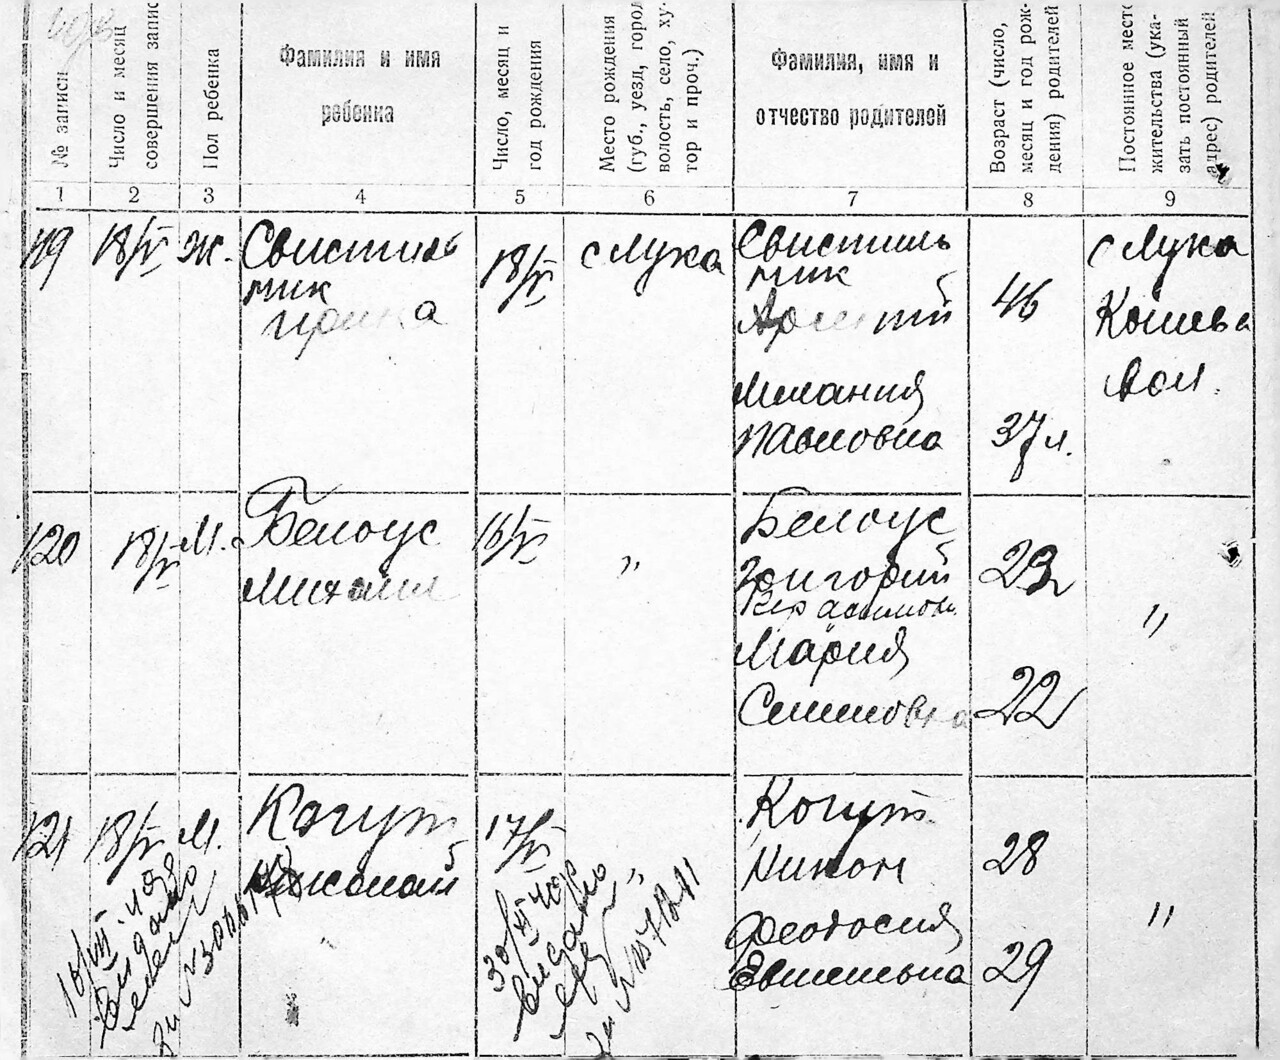 № записи
Число и месяц
совершения запис
Пол ребенка
Фамилия и имя
ребенка
Число, месяц и
год рождения
Место рождения
(губ., уезд, город
волость, село, ху-
тор и проч.)
Фамилия, имя и
отчество родителей
Возраст (число,
месяц и год рож-
дения) родителей
Постоянное мест
жительства (ука-
зать постоянный
адрес) родителей
1 2 3 4 5 6 7 8 9
119 18/V Ж.
Свистиль
ник
Ирина
18/V
с Лука
Свистиль
ник
Арсентий
Мелания
Павловна
46
37 л.
с Лука
Кошева
вол.
120 18/V М.
Белоус
Михаил
16/V
"
Белоус
Григорий
Герасимов
Мария
Семеновна
23
22
"
121 18/V М.
Когут
Николай
17/V
"
Когут
Никон
Феодосия
Евменовна
28
29
"
16/VII
30/VI 40р
за №